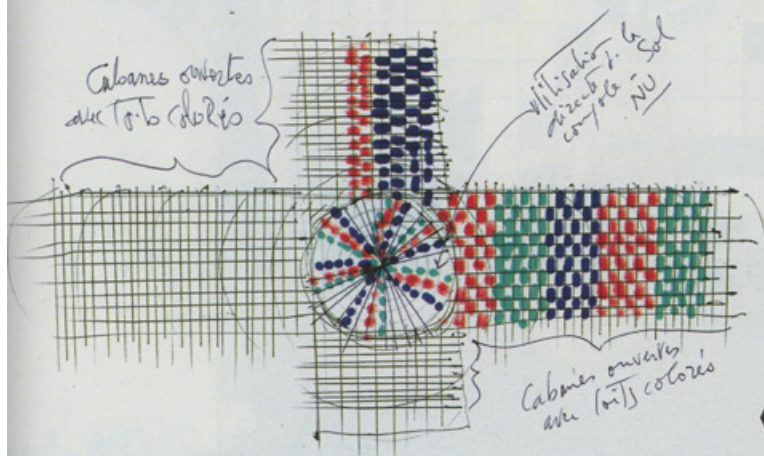 Cabanes ouvertes
avec Toits Colorés
Utilisation
directe
Sol
NU
Cabanes ouvertes
avec toits colorés